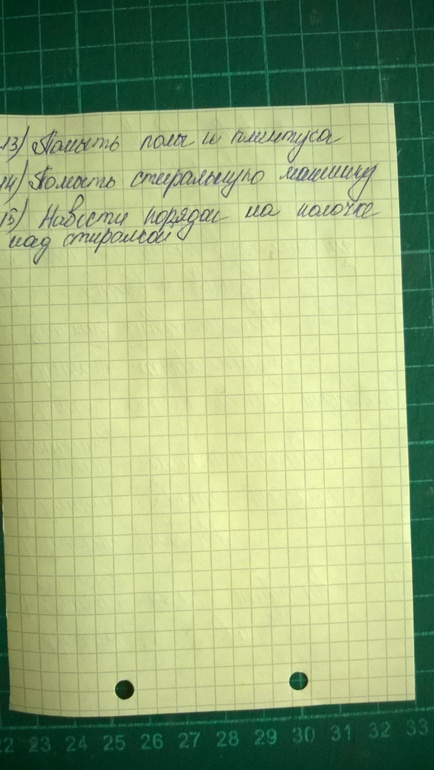 13) Помыть полы и плинтуса
14) Помыть стиральную машину
15) Навести порядок на полочке
над стиралкой
22 23 24 25 26 27 28 29 30 31 32 33